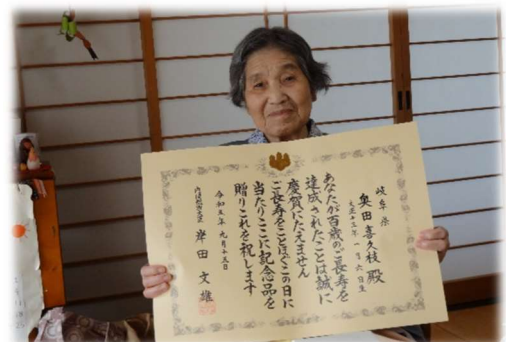 岐阜県
奥田喜久枝 殿
大正十三年一月六日生
あなたが百歳のご長寿を
達成されたことは誠に
慶賀にたえません
ご長寿をことほぐこの日に
当たりここに記念品を
贈りこれを祝します
令和五年九月十五日
内閣総理大臣 岸田文雄